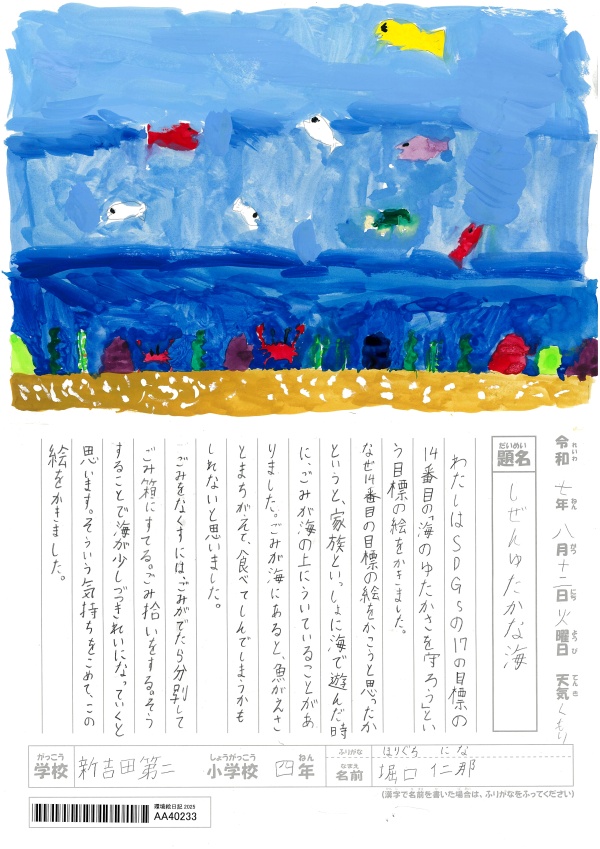 令和七年八月十二日火曜日天気くもり
れいわ ねん がつ にち ようび てんき
だいめい
題名
しぜんゆたかな海
わたしはSDGsの17の目標の
14番目の「海のゆたかさを守ろう」とい
う目標の絵をかきました。
なぜ14番目の目標の絵をかこうと思ったか
というと、家族といっしょに海で遊んだ時
に、ごみが海の上にういていることがあ
りました。ごみが海にあると、魚がえさ
とまちがえて、食べてしんでしまうかも
しれないと思いました。
ごみをなくすには、ごみがでたら分別して
ごみ箱にすてる。ごみ拾いをする。そう
することで海が少しづつきれいになっていくと
思います。そういう気持ちをこめて、この
絵をかきました。
がっこう しょうがっこう ねん
学校 新吉田第二 小学校 四年
ふりがな ほりぐち にな
なまえ
名前 堀口 仁那
(漢字で名前を書いた場合は、ふりがなをふってください)
環境絵日記 2025
AA40233